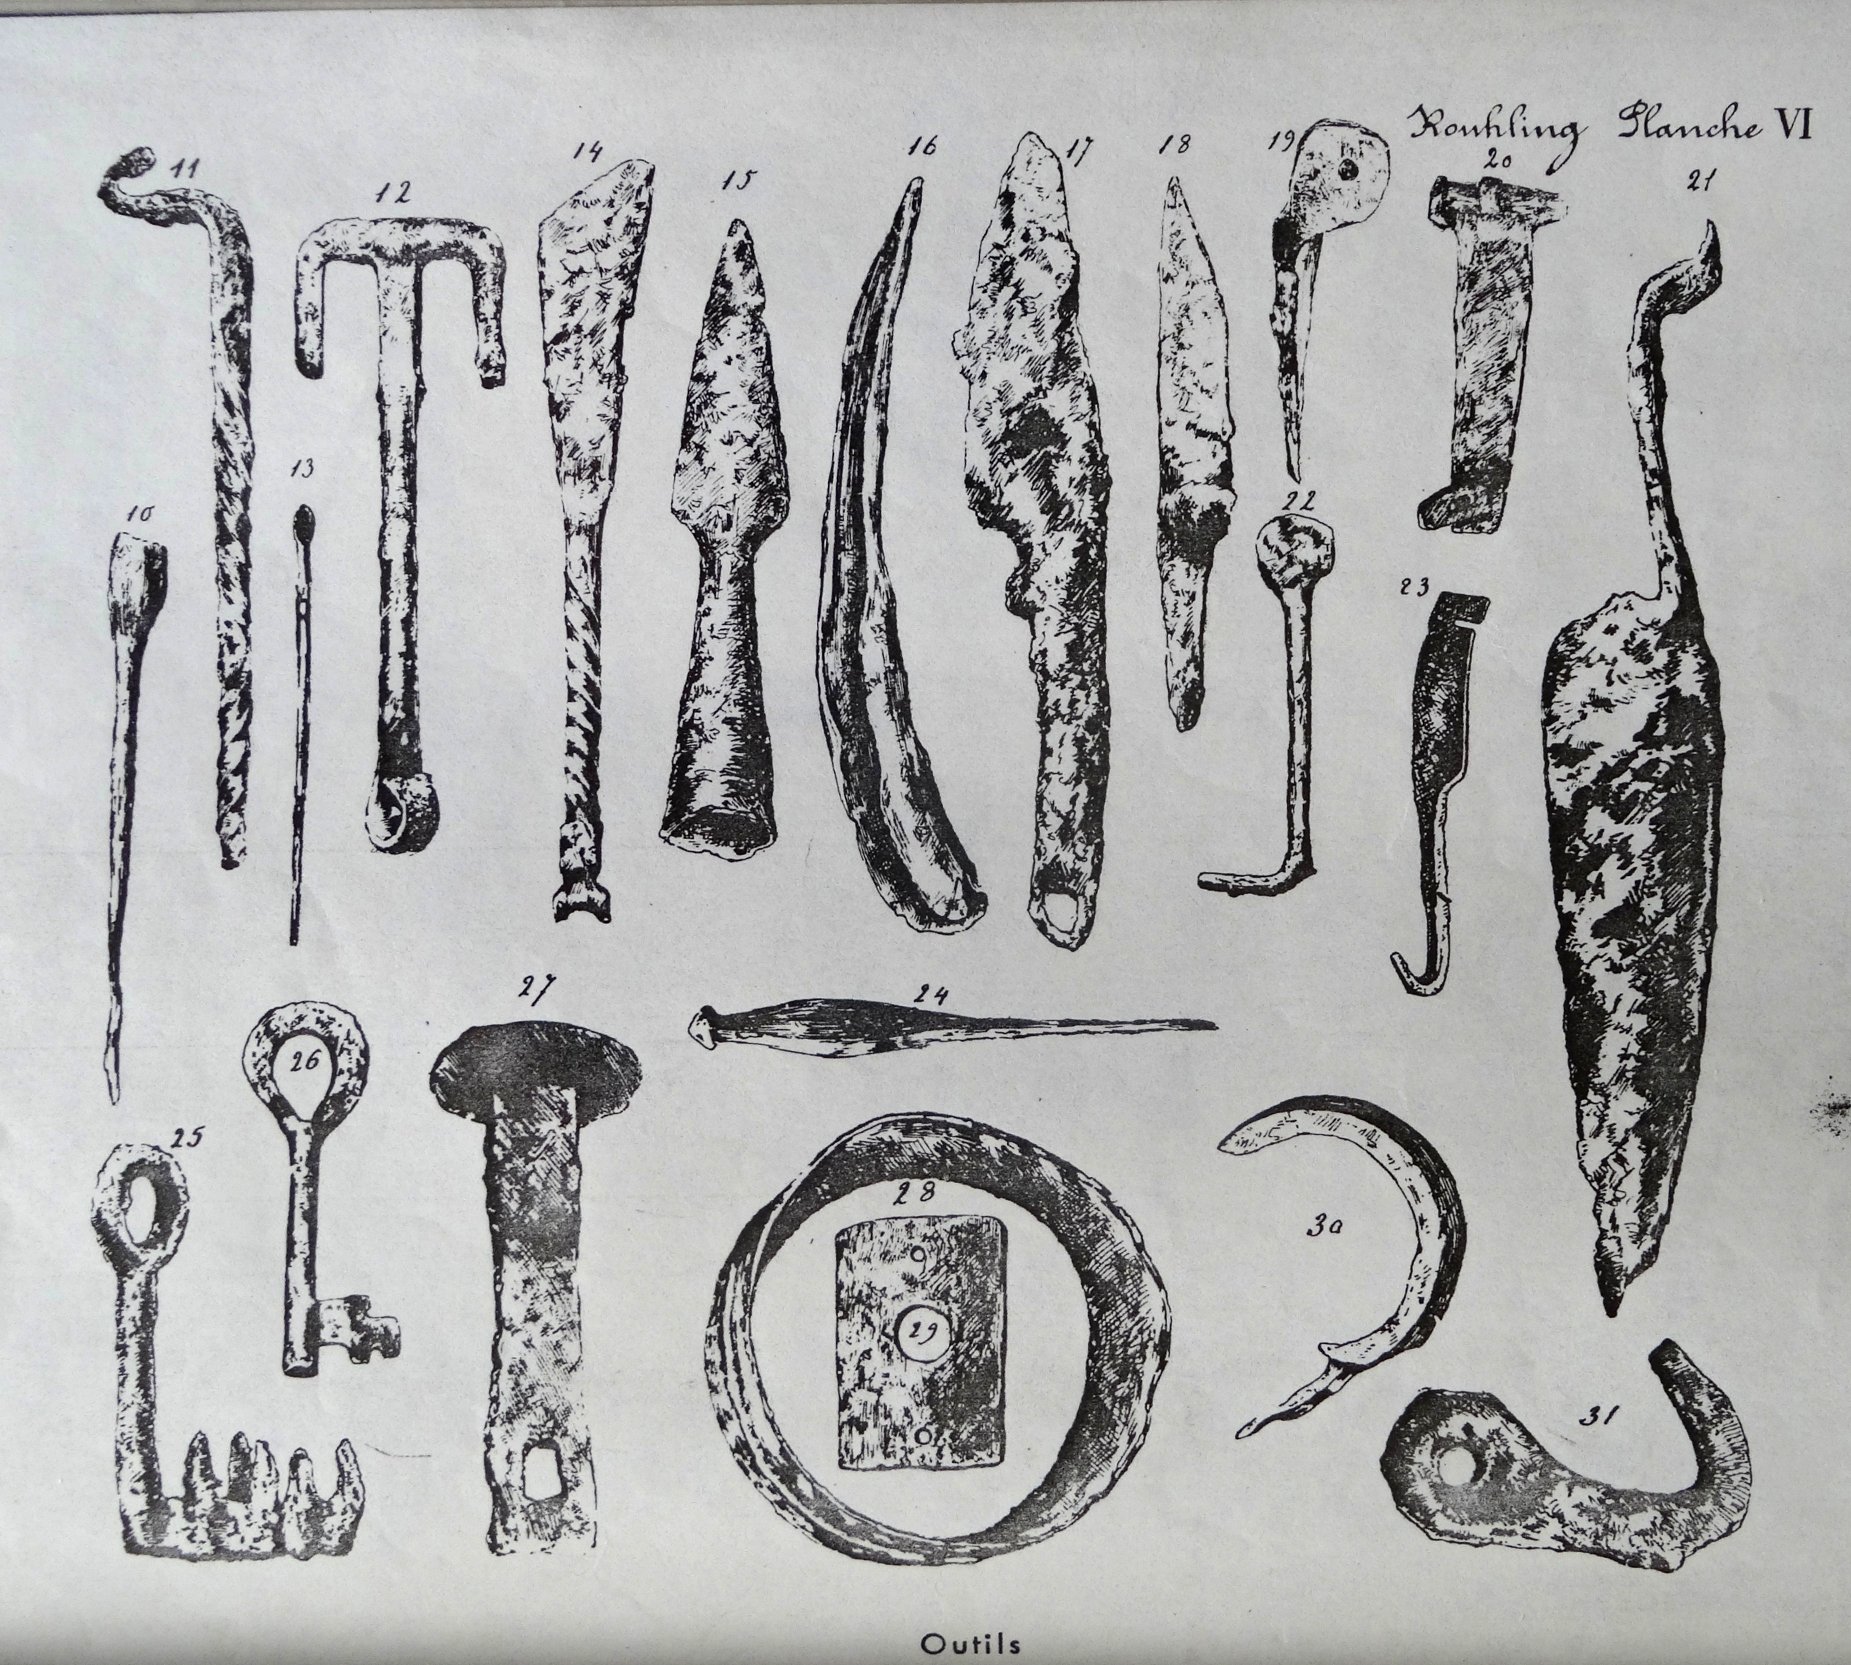 Rouhling Planche VI
11
12
14
15
16
17
18
19
20
21
10
13
22
23
27
24
26
25
28
29
30
31
Outils